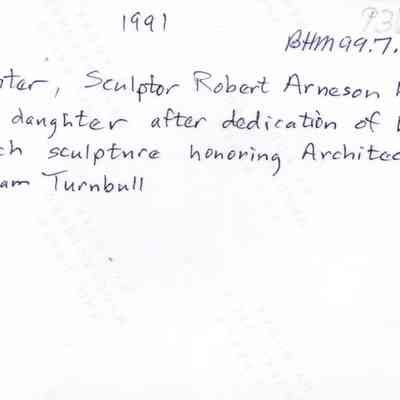 1991
BHM99.7.
nter, Sculptor Robert Arneson
daughter after dedication of
ch sculpture honoring Architec
am Turnbull